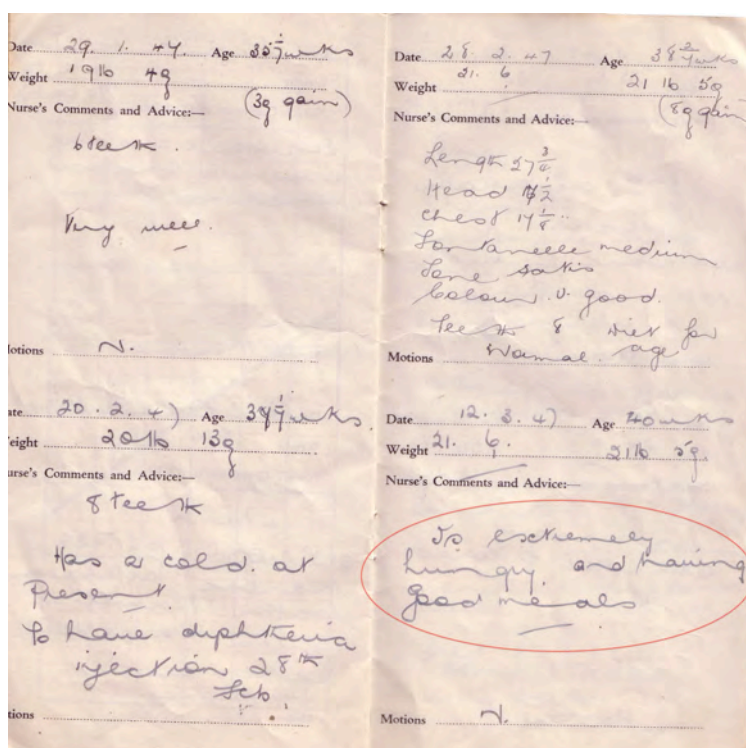 Date 29. 1. 47. Age wks
Weight 19lb 4g
Nurse's Comments and Advice:— (3g gain)
6 teeth.
Very well.
Motions N.
Date 20. 2. 47 Age wks.
Weight 20lb 13g
Nurse's Comments and Advice:—
8 teeth
Has a cold. at
Present.
To have diphtheria
injection 28th
Feb.
Motions
Date 28. 2. 47 Age 38 2/7 wks
Weight 21. 6 21 lb 5g
(8g gain)
Nurse's Comments and Advice:—
Length 27 3/4
Head 1/2
Chest 17 1/8
Fontanelle medium
Tone satis
Colour v. good.
Teeth 8 Diet for
age
Motions Normal.
Date 12. 3. 47 Age 40 wks
Weight 21. 6. 21lb 5g.
Nurse's Comments and Advice:—
Is extremely
hungry. and having
good meals
Motions N.